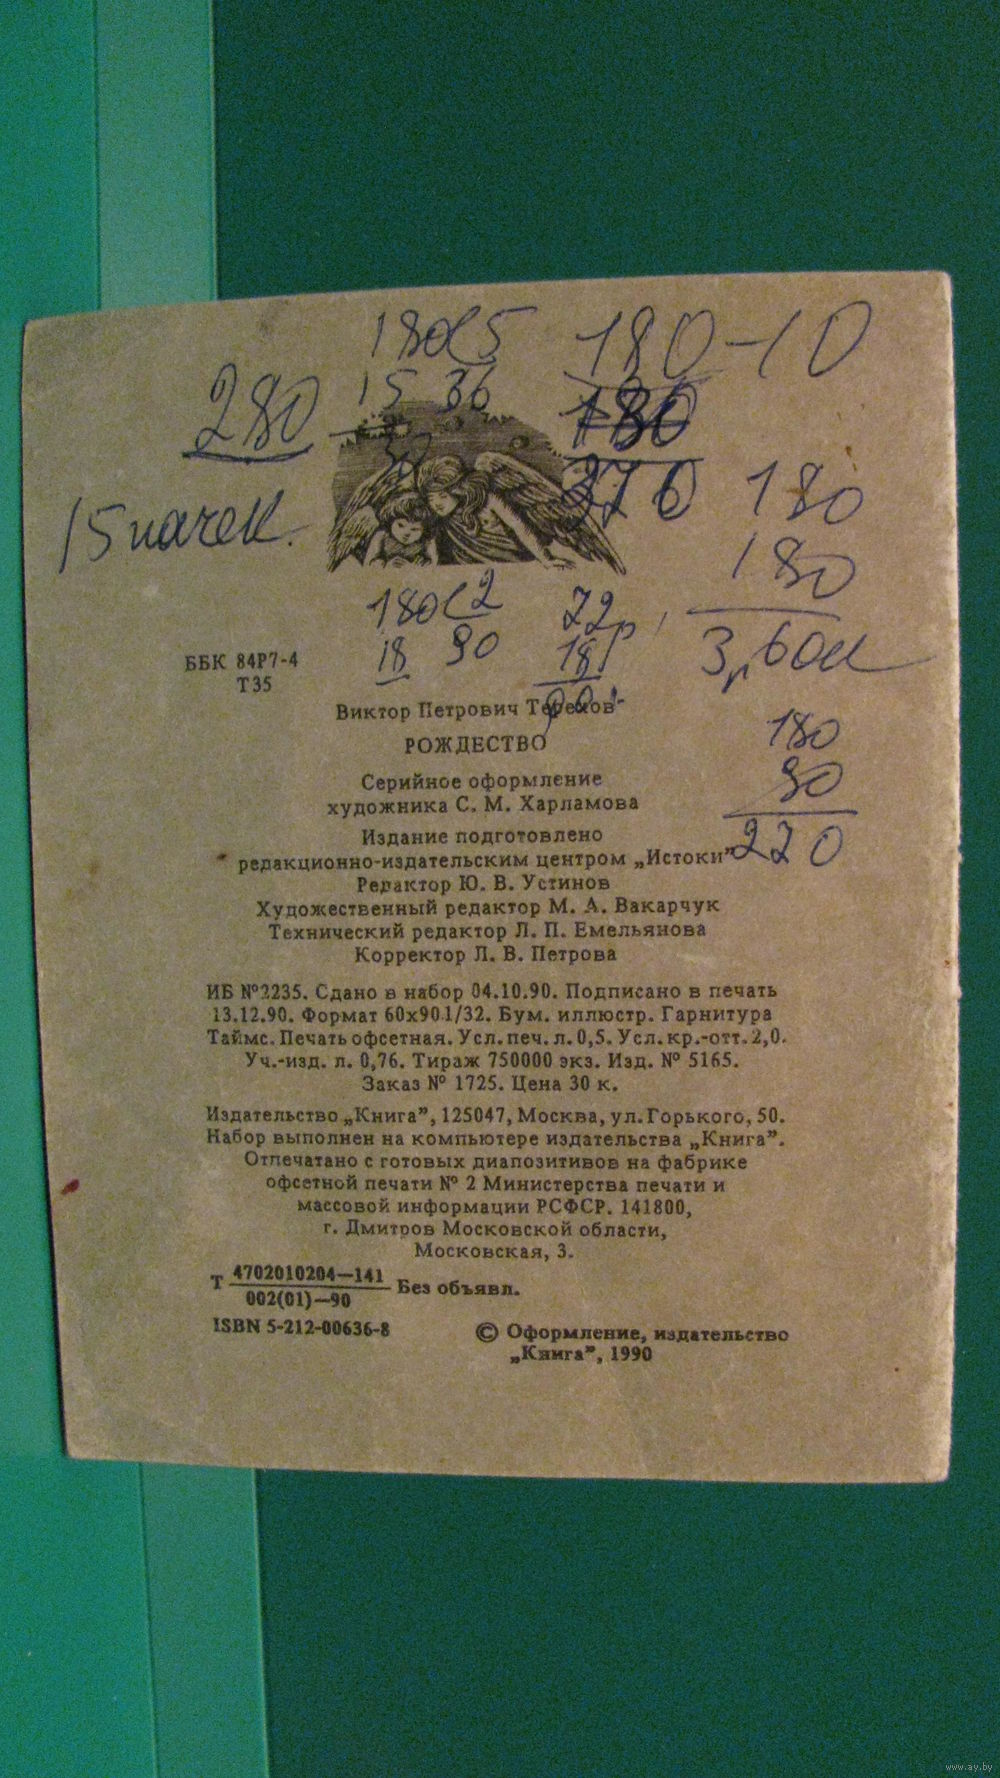 180 5
180-10
15 36
280
180
30
376
180
15 пачек.
180
180 2
72р
18 90
18р
3р 60к
ББК 84Р7-4
Т35
Виктор Петрович Терехов
180
РОЖДЕСТВО
90
Серийное оформление
художника С. М. Харламова
270
Издание подготовлено
редакционно-издательским центром „Истоки”
Редактор Ю. В. Устинов
Художественный редактор М. А. Вакарчук
Технический редактор Л. П. Емельянова
Корректор Л. В. Петрова
ИБ №2235. Сдано в набор 04.10.90. Подписано в печать
13.12.90. Формат 60х90 1/32. Бум. иллюстр. Гарнитура
Таймс. Печать офсетная. Усл. печ. л. 0,5. Усл. кр.-отт. 2,0.
Уч.-изд. л. 0,76. Тираж 750000 экз. Изд. № 5165.
Заказ № 1725. Цена 30 к.
Издательство „Книга”, 125047, Москва, ул. Горького, 50.
Набор выполнен на компьютере издательства „Книга”.
Отпечатано с готовых диапозитивов на фабрике
офсетной печати № 2 Министерства печати и
массовой информации РСФСР. 141800,
г. Дмитров Московской области,
Московская, 3.
Т 4702010204—141 Без объявл.
002(01)—90
ISBN 5-212-00636-8
© Оформление, издательство
„Книга”, 1990
www.ay.by